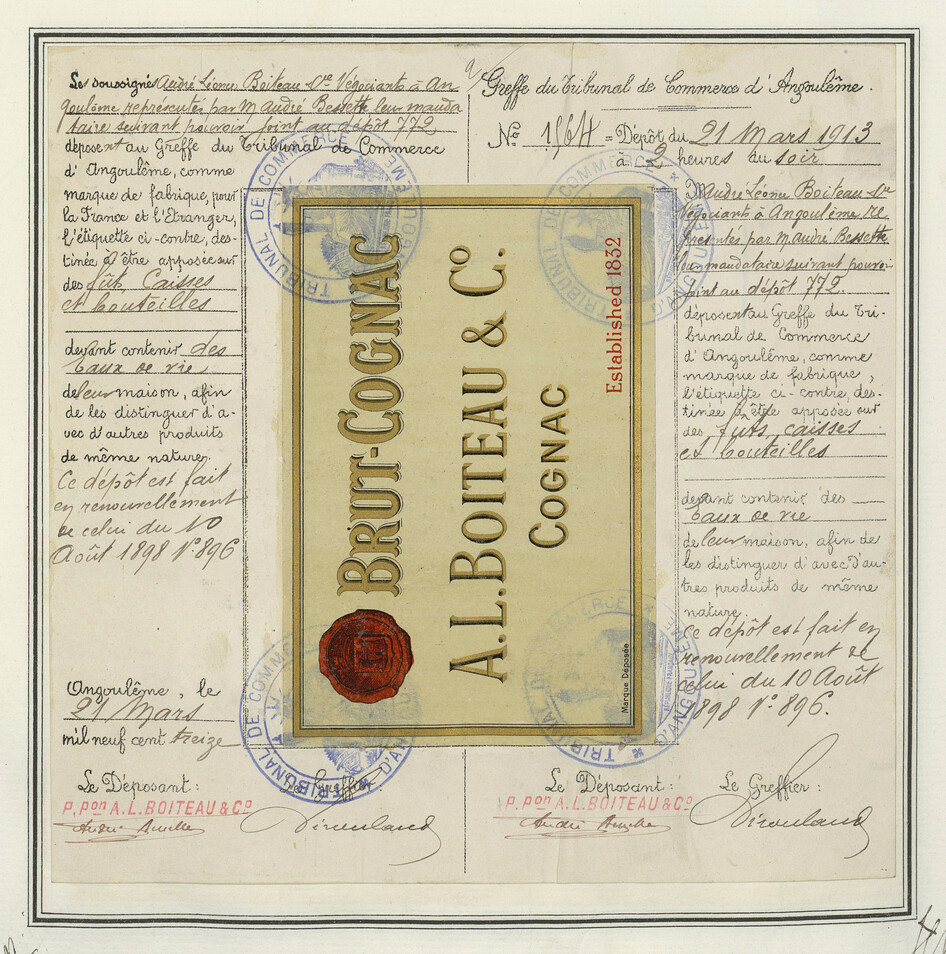 Les soussignés André Léonce Boiteau & Cie Négociants à An
goulême représentés par M André Bessette leur manda
taire suivant pouvoir joint au dépôt 772
déposent au Greffe du Tribunal de Commerce
d'Angoulême, comme
marque de fabrique, pour
la France et l'Étranger,
l'étiquette ci-contre, des-
tinée à être apposée sur
des fûts, Caisses
et bouteilles
devant contenir des
Eaux de vie
de leur maison, afin
de les distinguer d'a-
vec d'autres produits
de même nature.
Ce dépôt est fait
en renouvellement
de celui du 10
Août 1898 N° 896
Angoulême, le
21 Mars
mil neuf cent treize
Le Déposant :
Le Greffier
P. Pon A. L. BOITEAU & Co
Greffe du Tribunal de Commerce d'Angoulême.
No 1564 = Dépôt du 21 Mars 1913
à 2 heures du soir
M André Léonce Boiteau & Cie
Négociants à Angoulême re
présentés par M. André Bessette
leur mandataire suivant pouvoir
joint au dépôt 772.
déposent au Greffe du Tri-
bunal de Commerce
d'Angoulême, comme
marque de fabrique,
l'étiquette ci-contre, des-
tinée à être apposée sur
des fûts, caisses
et bouteilles
devant contenir des
Eaux de vie
de leur maison, afin de
les distinguer d'avec d'au-
tres produits de même
nature.
Ce dépôt est fait en
renouvellement de
celui du 10 Août
1898 N° 896.
Le Déposant :
Le Greffier :
P. Pon A. L. BOITEAU & Co
BRUT-COGNAC
A.L. BOITEAU & Co.
COGNAC
Established 1832
Marque Déposée
TRIBUNAL DE COMMERCE D'ANGOULEME
TRIBUNAL DE COMMERCE D'ANGOULEME
TRIBUNAL DE COMMERCE D'ANGOULEME
TRIBUNAL DE COMMERCE D'ANGOULEME